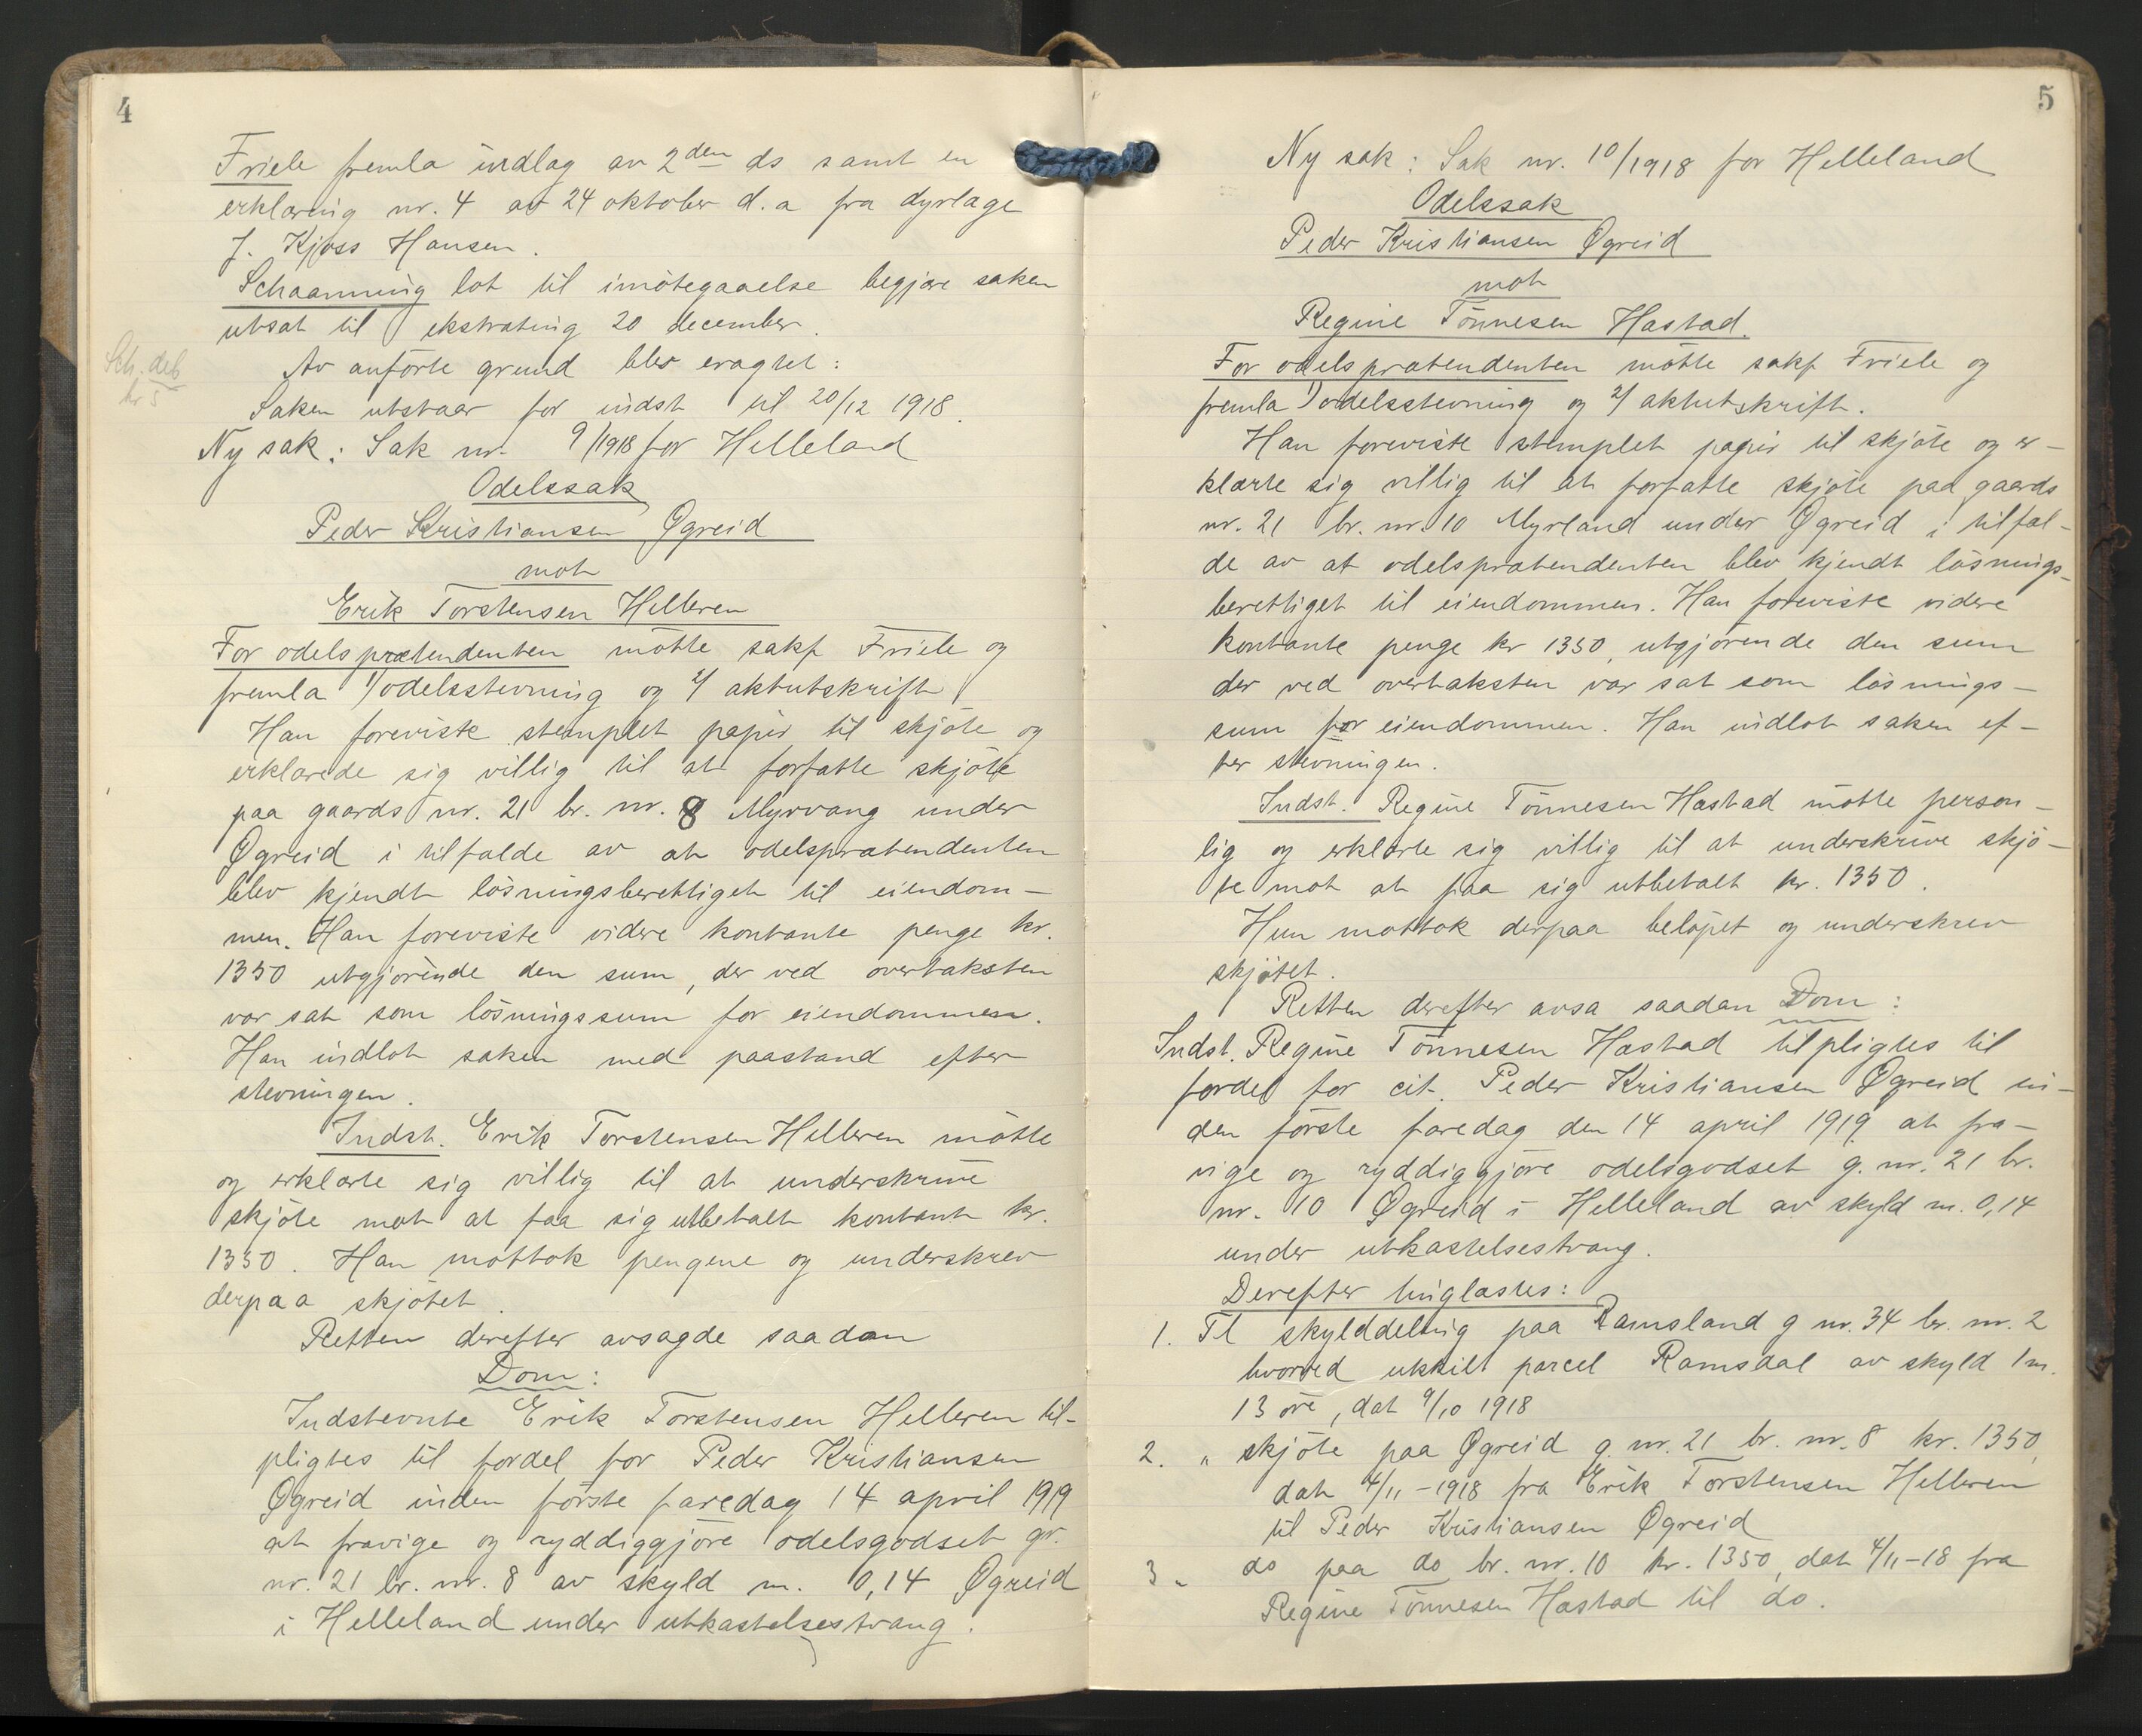 4
Friele fremla indlag av 2den ds samt en
erklæring nr. 4 av 24 oktober d.a fra dyrlæge
J. Kjoss Hansen.
Schaanning lot til imötegaaelse begjære saken
utsat til ekstrating 20 december.
Sch. deb
kr 5
Av anförte grund blev eragtet:
Saken utstaar for indst til 20/12 1918.
Ny sak: Sak nr. 9/1918 for Helleland
Odelssak
Peder Kristiansen Øgreid
mot
Erik Torstensen Helleren
For odelsprætendenten mötte sakf Friele og
fremla 1/ odelsstevning og 2/ aktutskrift
Han foreviste stemplet papir til skjöte og
erklærede sig villig til at forfatte skjöte
paa gaards nr. 21 br. nr. 8 Myrvang under
Øgreid i tilfælde av at odelsprætendenten
blev kjendt lösningsberettiget til eiendom-
men. Han foreviste videre kontante penge kr.
1350 utgjörende den sum, der ved overtaksten
var sat som lösningssum for eiendommen.
Han indlot saken med paastand efter
stevningen.
Indst. Erik Torstensen Helleren mötte
og erklærte sig villig til at underskrive
skjöte mot at faa sig utbetalt kontant kr.
1350. Han mottok pengene og underskrev
derpaa skjötet.
Retten derefter avsagde saadan
Dom:
Indstevnte Erik Torstensen Helleren til-
pligtes til fordel for Peder Kristiansen
Øgreid inden förste faredag 14 april 1919
at fravige og ryddiggjöre odelsgodset gr.
nr. 21 br. nr. 8 av skyld m. 0,14 Øgreid
i Helleland under utkastelsestvang.
5
Ny sak: Sak nr. 10/1918 for Helleland
Odelssak
Peder Kristiansen Øgreid
mot
Regine Tönnesen Hæstad.
For odelsprætendenten mötte sakf Friele og
fremla 1) odelsstevning og 2/ aktutskrift.
Han foreviste stemplet papir til skjöte og er-
klærte sig villig til at forfatte skjöte paa gaards
nr. 21 br. nr. 10 Myrland under Øgreid i tilfæl-
de av at odelsprætendenten blev kjendt lösnings-
berettiget til eiendommen. Han foreviste videre
kontante penge kr 1350, utgjörende den sum
der ved overtaksten var sat som lösnings-
sum for eiendommen. Han indlot saken ef-
ter stevningen.
Indst. Regine Tönnesen Hæstad mötte person-
lig og erklærte sig villig til at underskrive skjö-
te mot at faa sig utbetalt kr. 1350.
Hun mottok derpaa belöpet og underskrev
skjötet.
Retten derefter avsa saadan Dom:
Indst. Regine Tönnesen Hæstad tilpligtes til
fordel for cit. Peder Kristiansen Øgreid in-
den förste faredag den 14 april 1919 at fra-
vige og ryddiggjöre odelsgodset g. nr. 21 br.
nr. 10 Øgreid i Helleland av skyld m. 0,14
under utkastelsestvang.
Derefter tinglæstes:
1. Tl skylddeling paa Ramsland g nr. 34 br. nr. 2
hvorved utskilt parcel Ramsdal av skyld 1 m.
13 öre, dat 9/10 1918
2. " skjöte paa Øgreid g. nr. 21 br. nr. 8 kr. 1350,
dat 4/11-1918 fra Erik Torstensen Helleren
til Peder Kristiansen Øgreid
3 " do paa do br. nr. 10 kr. 1350, dat 4/11-18 fra
Regine Tönnesen Hæstad til do.